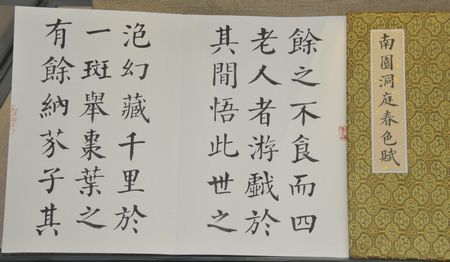 南園洞庭春色賦
餘之不食而四
老人者游戲於
其閒悟此世之
泡幻藏千里於
一斑舉棗葉之
有餘納芥子其